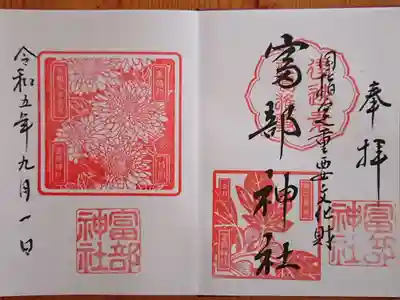 奉拝
国指定重要文化財
富部神社
富部
神社
令和五年九月一日
富部
神社